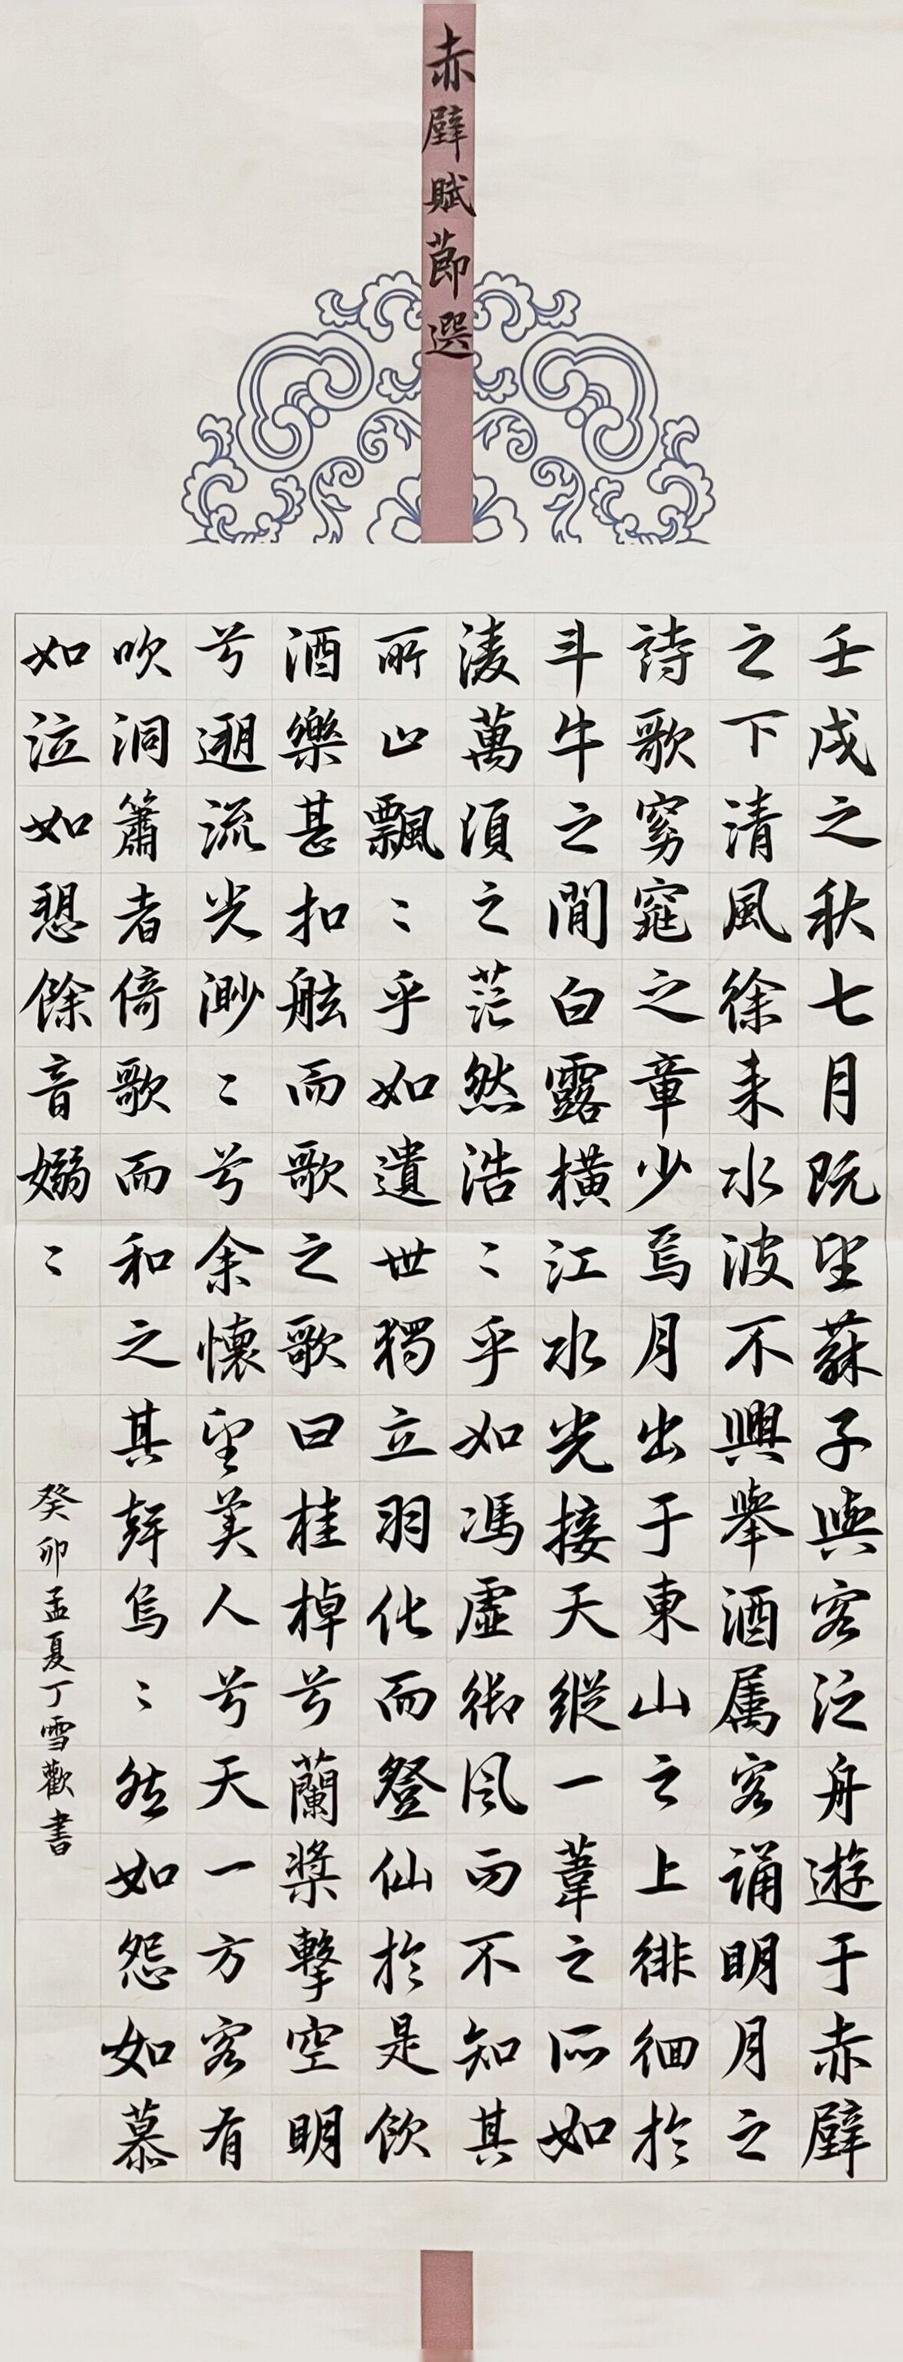 赤壁賦節選
壬戌之秋七月既望蘇子與客泛舟遊于赤壁
之下清風徐來水波不興舉酒属客誦明月之
詩歌窈窕之章少焉月出于東山之上徘徊於
斗牛之間白露橫江水光接天縱一葦之所如
淩萬頃之茫然浩〻乎如馮虛御風而不知其
所止飄〻乎如遺世獨立羽化而登仙於是飲
酒樂甚扣舷而歌之歌曰桂棹兮蘭槳擊空明
兮遡流光渺〻兮余懷望美人兮天一方客有
吹洞簫者倚歌而和之其聲烏〻然如怨如慕
如泣如愬餘音嫋〻
癸卯孟夏丁雪歡書